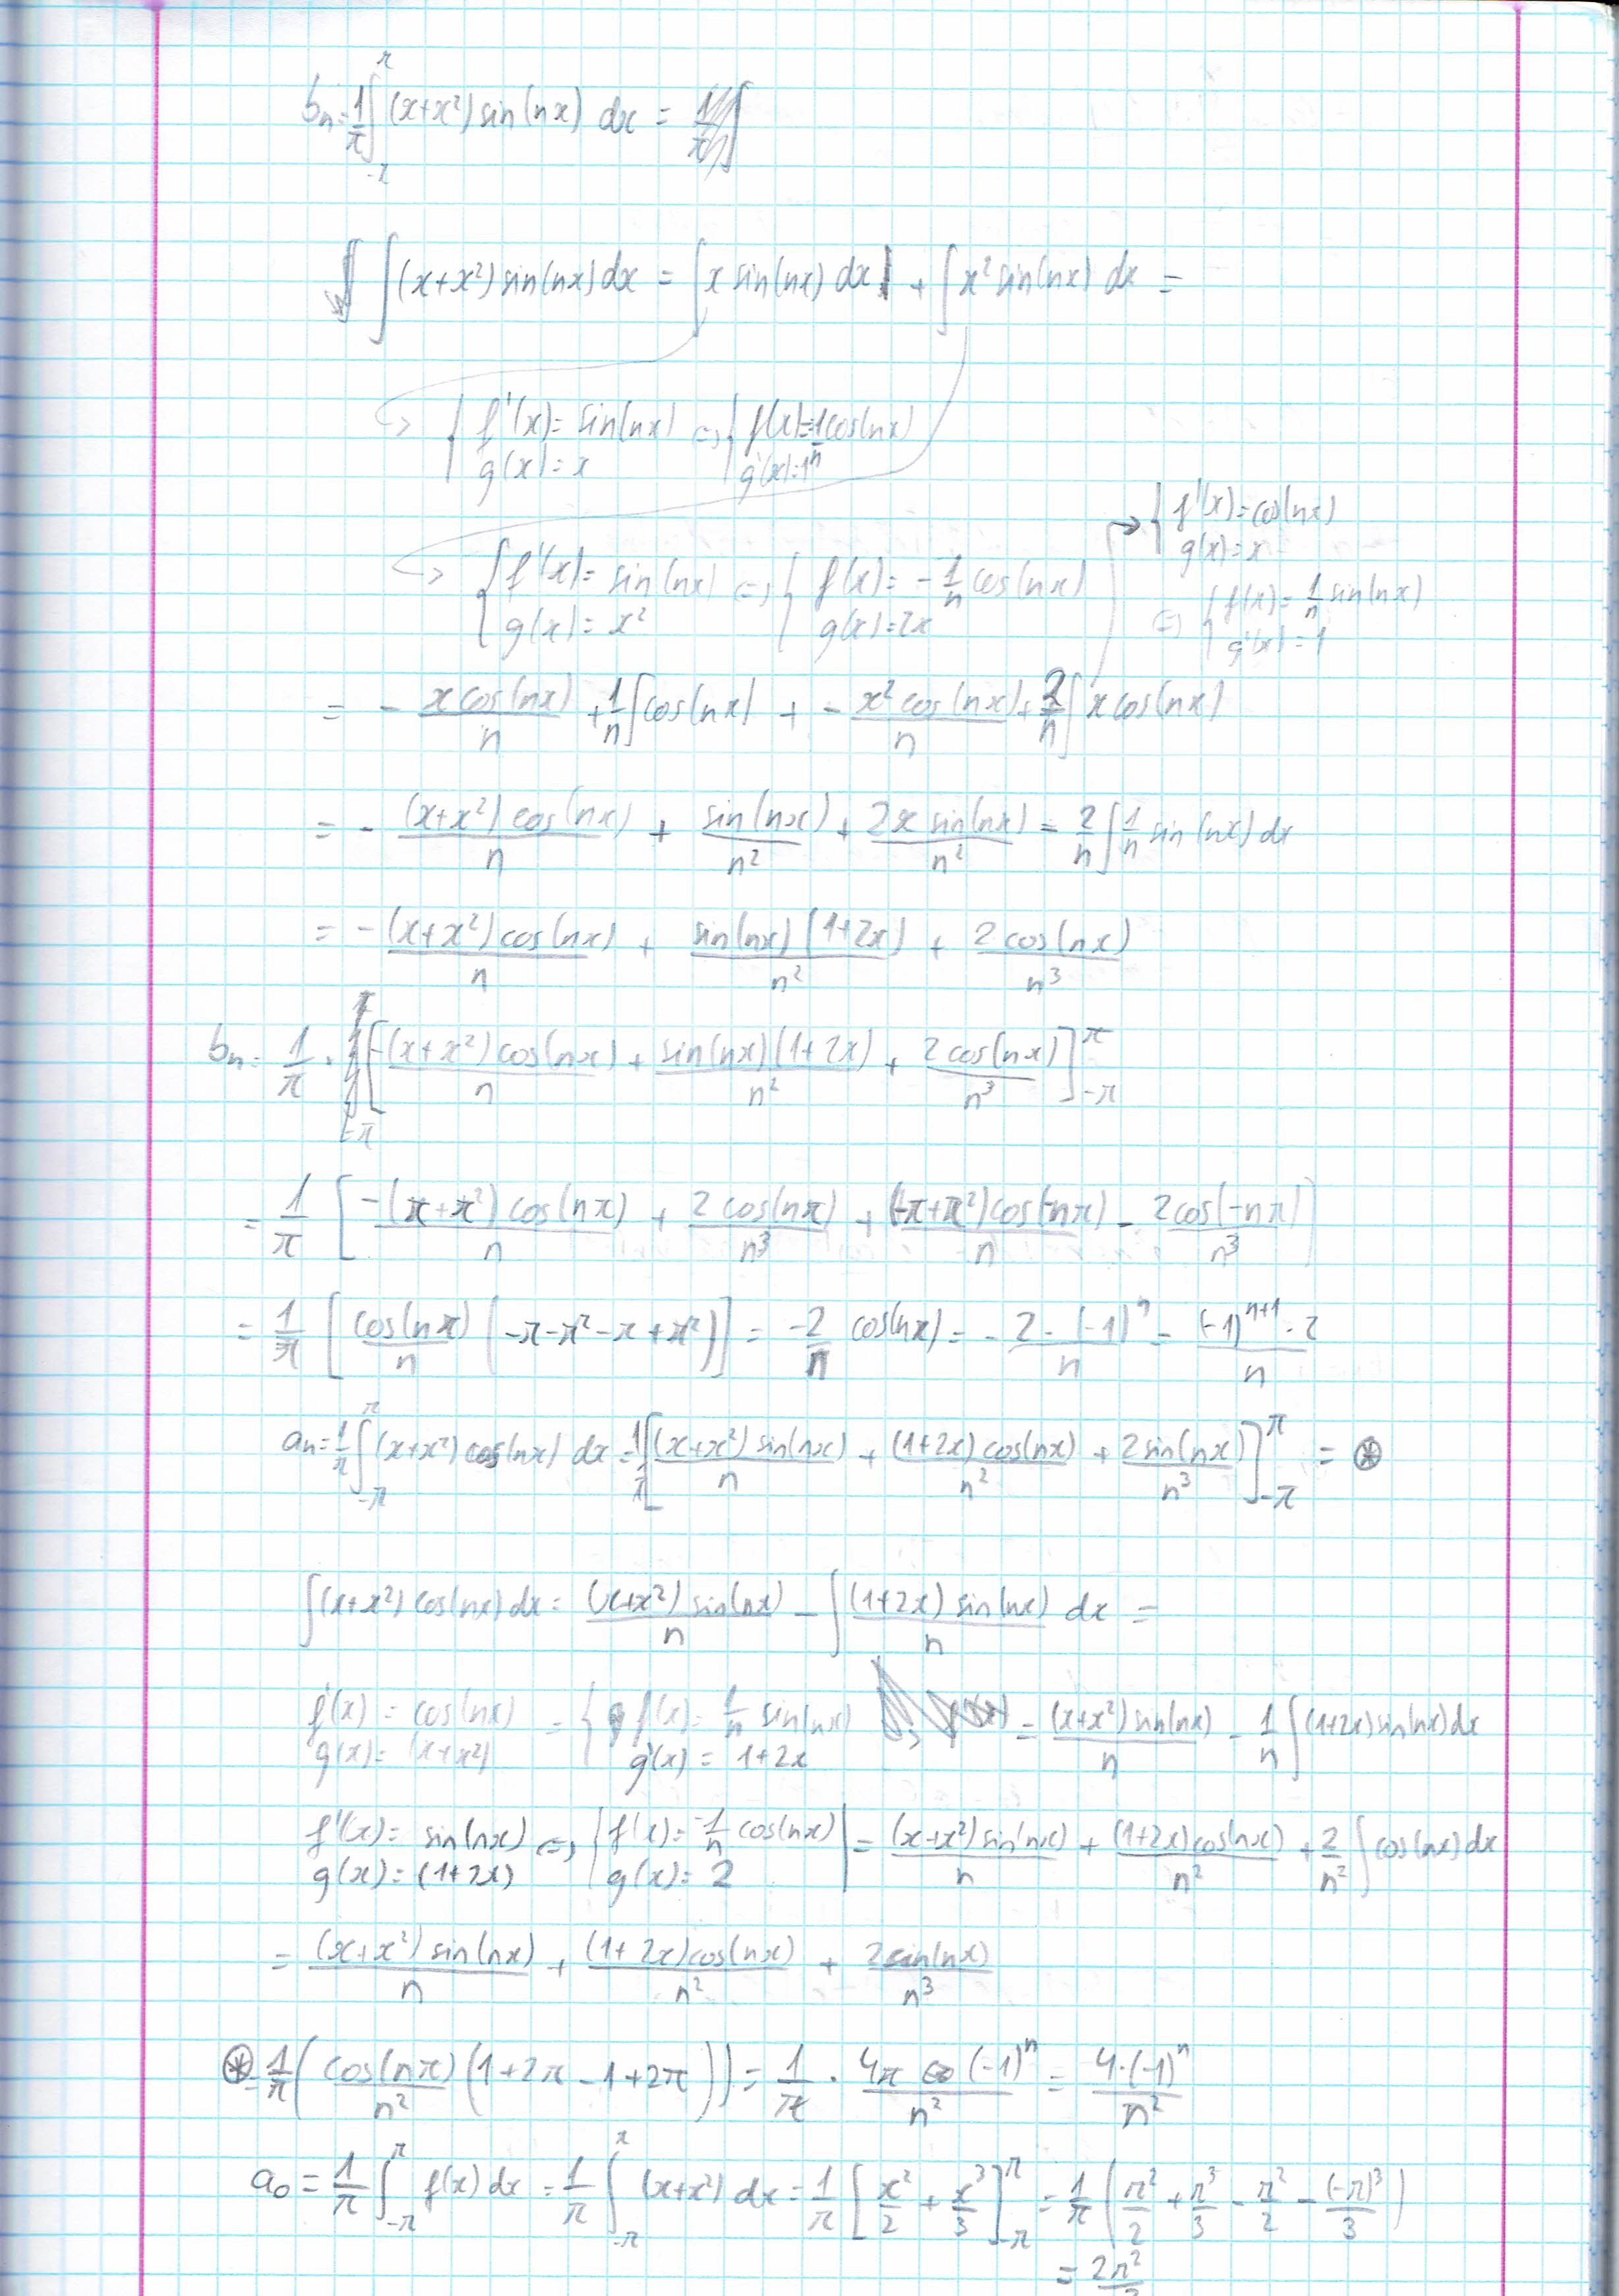 bₙ = 1/π ∫_{-π}^{π} (x+x²) sin(nx) dx =
∫(x+x²) sin(nx) dx = ∫x sin(nx) dx + ∫x² sin(nx) dx =
{ f'(x) = sin(nx) => { f(x) = -1/n cos(nx)
g(x) = x g'(x) = 1
→ { f'(x) = cos(nx)
g(x) = x
{ f'(x) = sin(nx) => { f(x) = -1/n cos(nx) => { f(x) = 1/n sin(nx)
g(x) = x² g(x) = 2x g'(x) = 1
= - x cos(nx)/n + 1/n ∫cos(nx) + - x² cos(nx)/n + 2/n ∫ x cos(nx)
= - (x+x²) cos(nx)/n + sin(nx)/n² + 2x sin(nx)/n² - 2/n ∫ 1/n sin(nx) dx
= - (x+x²) cos(nx)/n + sin(nx)(1+2x)/n² + 2 cos(nx)/n³
bₙ = 1/π · [-(x+x²) cos(nx)/n + sin(nx)(1+2x)/n² + 2 cos(nx)/n³]_{-π}^{π}
= 1/π [-(π+π²) cos(nπ)/n + 2 cos(nπ)/n³ + (-π+π²) cos(-nπ)/n - 2 cos(-nπ)/n³]
= 1/π [cos(nπ)/n (-π-π²-π+π²)] = -2/n cos(nπ) = -2·(-1)ⁿ/n = (-1)ⁿ⁺¹·2/n
aₙ = 1/π ∫_{-π}^{π} (x+x²) cos(nx) dx = 1/π [(x+x²) sin(nx)/n + (1+2x) cos(nx)/n² + 2 sin(nx)/n³]_{-π}^{π} = ⊛
∫(x+x²) cos(nx) dx = (x+x²) sin(nx)/n - ∫(1+2x) sin(nx)/n dx =
f'(x) = cos(nx) = { f(x) = 1/n sin(nx) = (x+x²) sin(nx)/n - 1/n ∫(1+2x) sin(nx) dx
g(x) = (x+x²) g'(x) = 1+2x
f'(x) = sin(nx) => { f(x) = -1/n cos(nx) | = (x+x²) sin(nx)/n + (1+2x) cos(nx)/n² + 2/n² ∫cos(nx) dx
g(x) = (1+2x) g(x) = 2
= (x+x²) sin(nx)/n + (1+2x) cos(nx)/n² + 2 sin(nx)/n³
⊛ = 1/π (cos(nπ)/n² (1+2π-1+2π)) = 1/π · 4π (-1)ⁿ/n² = 4·(-1)ⁿ/n²
a₀ = 1/π ∫_{-π}^{π} f(x) dx = 1/π ∫_{-π}^{π} (x+x²) dx = 1/π [x²/2 + x³/3]_{-π}^{π} = 1/π (π²/2 + π³/3 - π²/2 - (-π)³/3)
= 2π²/3